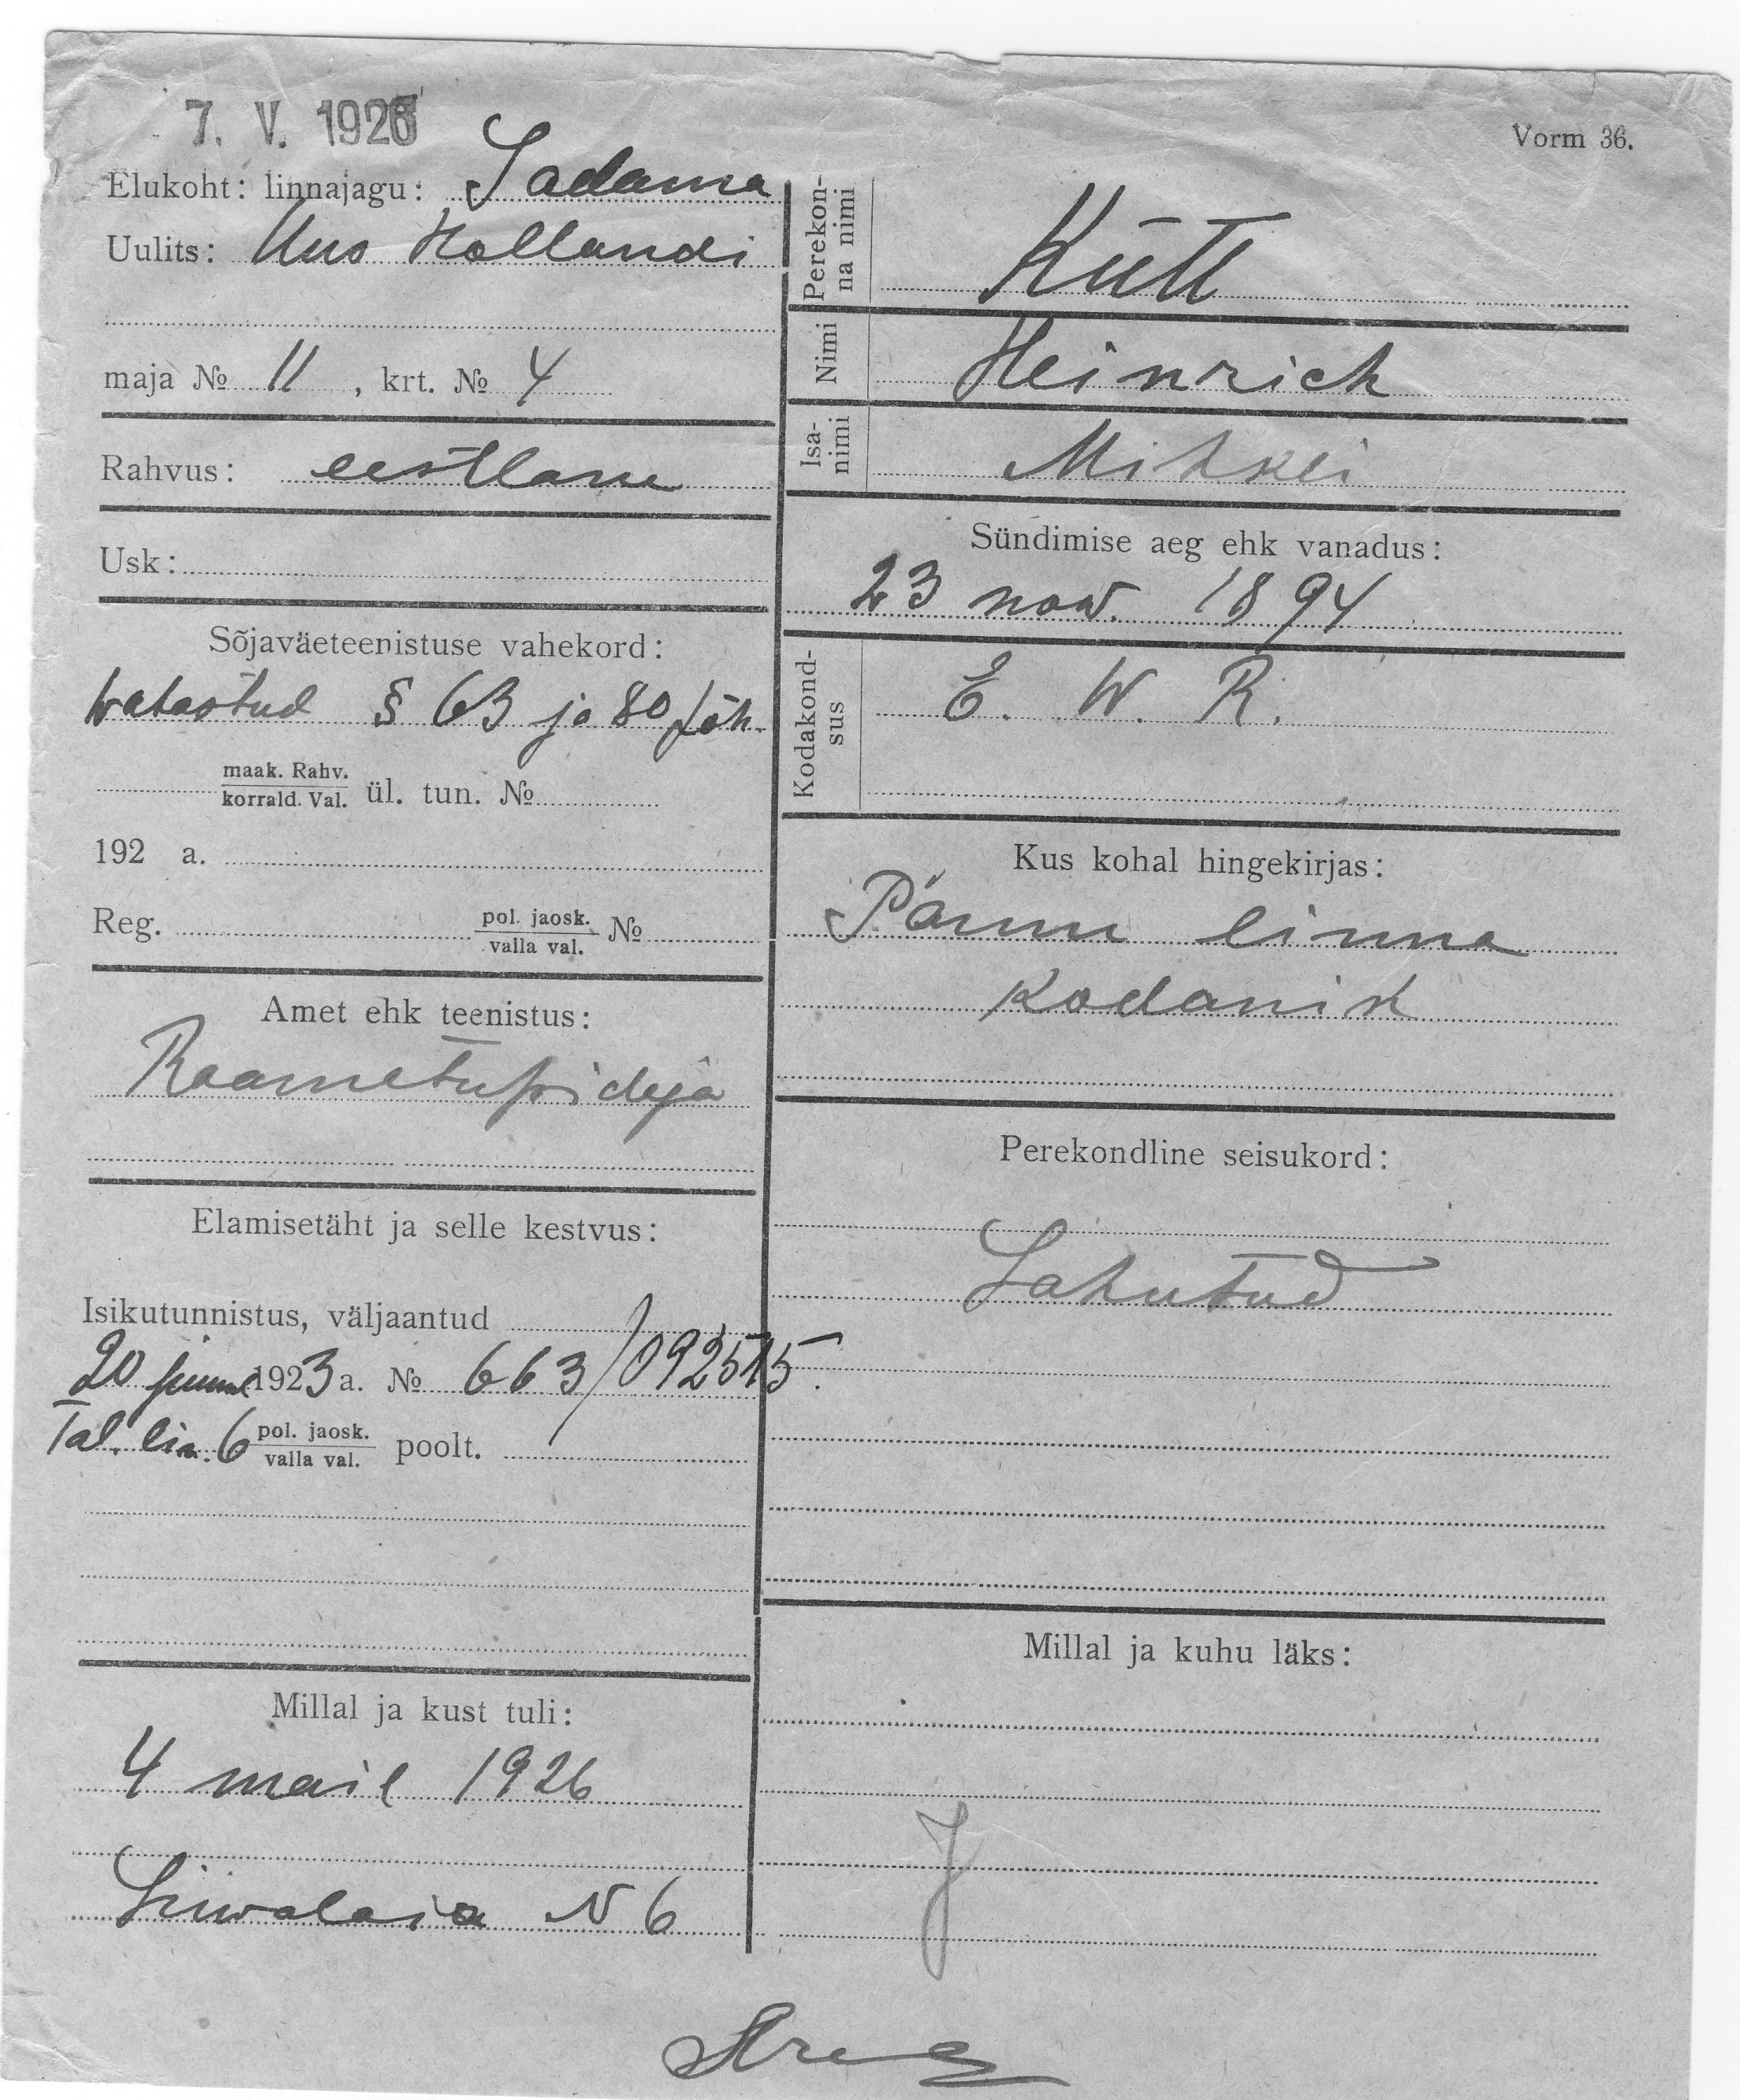 7. V. 1926
Vorm 36.
Elukoht: linnajagu: Sadama
Uulits: Uus Hollandi
maja № 11, krt. № 4
Rahvus: eestlane
Usk:
Sõjaväeteenistuse vahekord:
wabastud § 63 ja 80 põh.
maak. Rahv.
korrald. Val. ül. tun. №
192 a.
Reg. pol. jaosk. №
valla val.
Amet ehk teenistus:
Raamatupidaja
Elamisetäht ja selle kestvus:
Isikutunnistus, väljaantud
20 1923 a. № 663/092515.
Tal. lin. 6 pol. jaosk. poolt.
valla val.
Millal ja kust tuli:
4 mail 1926
Liiwalaia N 6
Perekonna nimi
Kütt
Nimi
Heinrich
Isanimi
Mihkli
Sündimise aeg ehk vanadus:
23 now. 1894
Kodakondsus
E. W. R.
Kus kohal hingekirjas:
Pärnu linna
kodanik
Perekondline seisukord:
Lahutud
Millal ja kuhu läks:
J